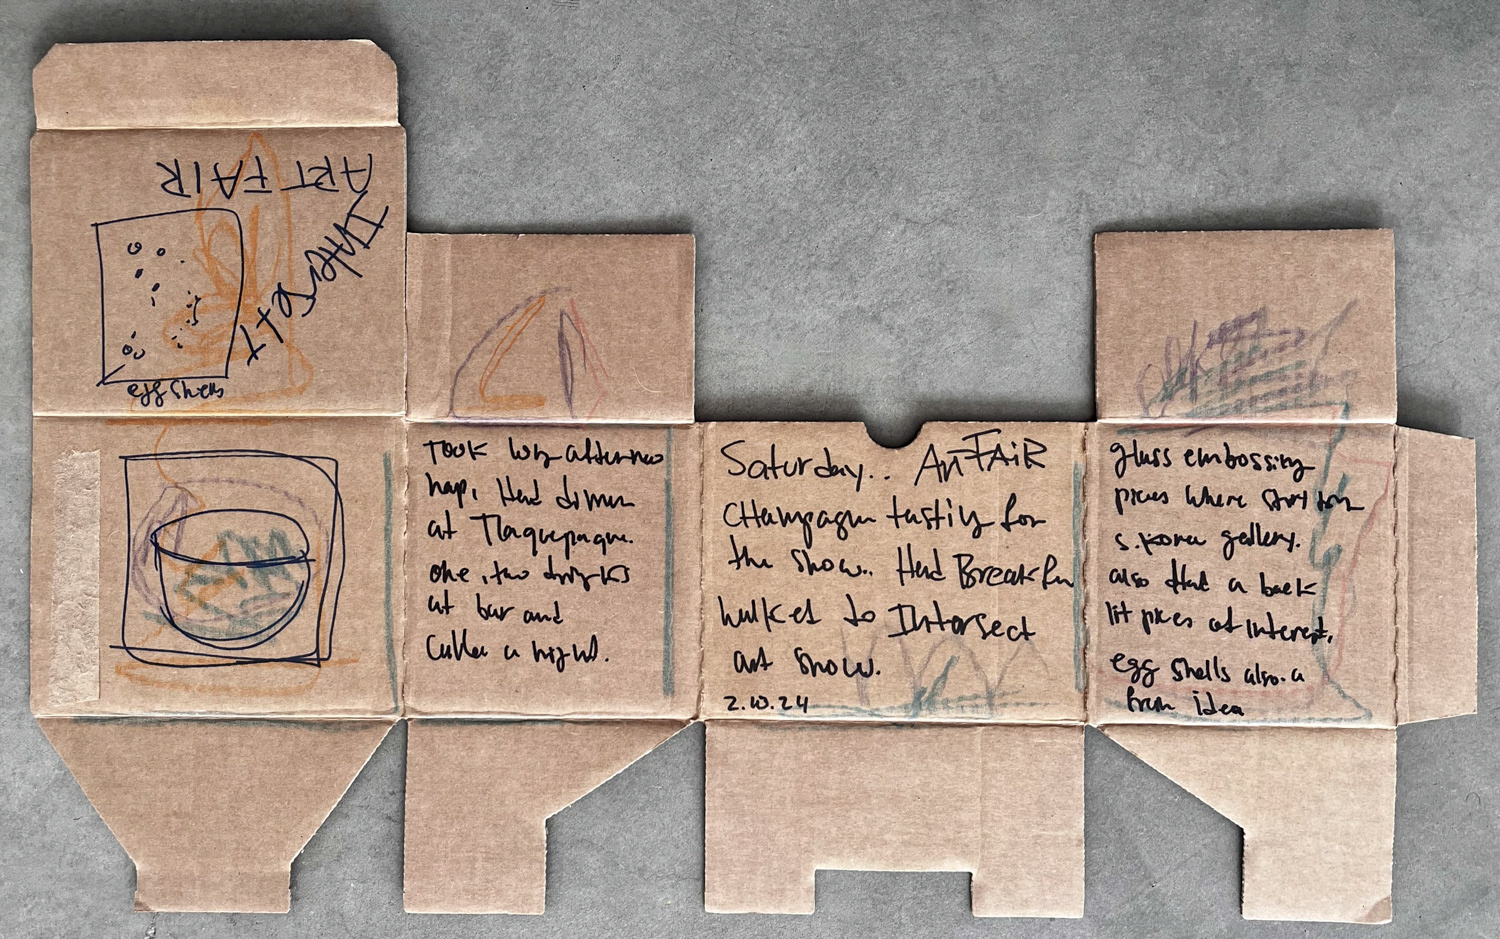 ART FAIR
Intersect
egg shells
Took long afternoon
nap, Had dinner
at Tlaquepaque.
one, two drinks
at bar and
Called a night.
Saturday.. Art FAIR
CHampagne tasting for
the show.. Had Breakfast
walked to Intersect
art show.
2.10.24
glass embossing
pieces where from
S. Korea gallery.
also Had a back
lit pieces of interest.
egg shells also a
from idea